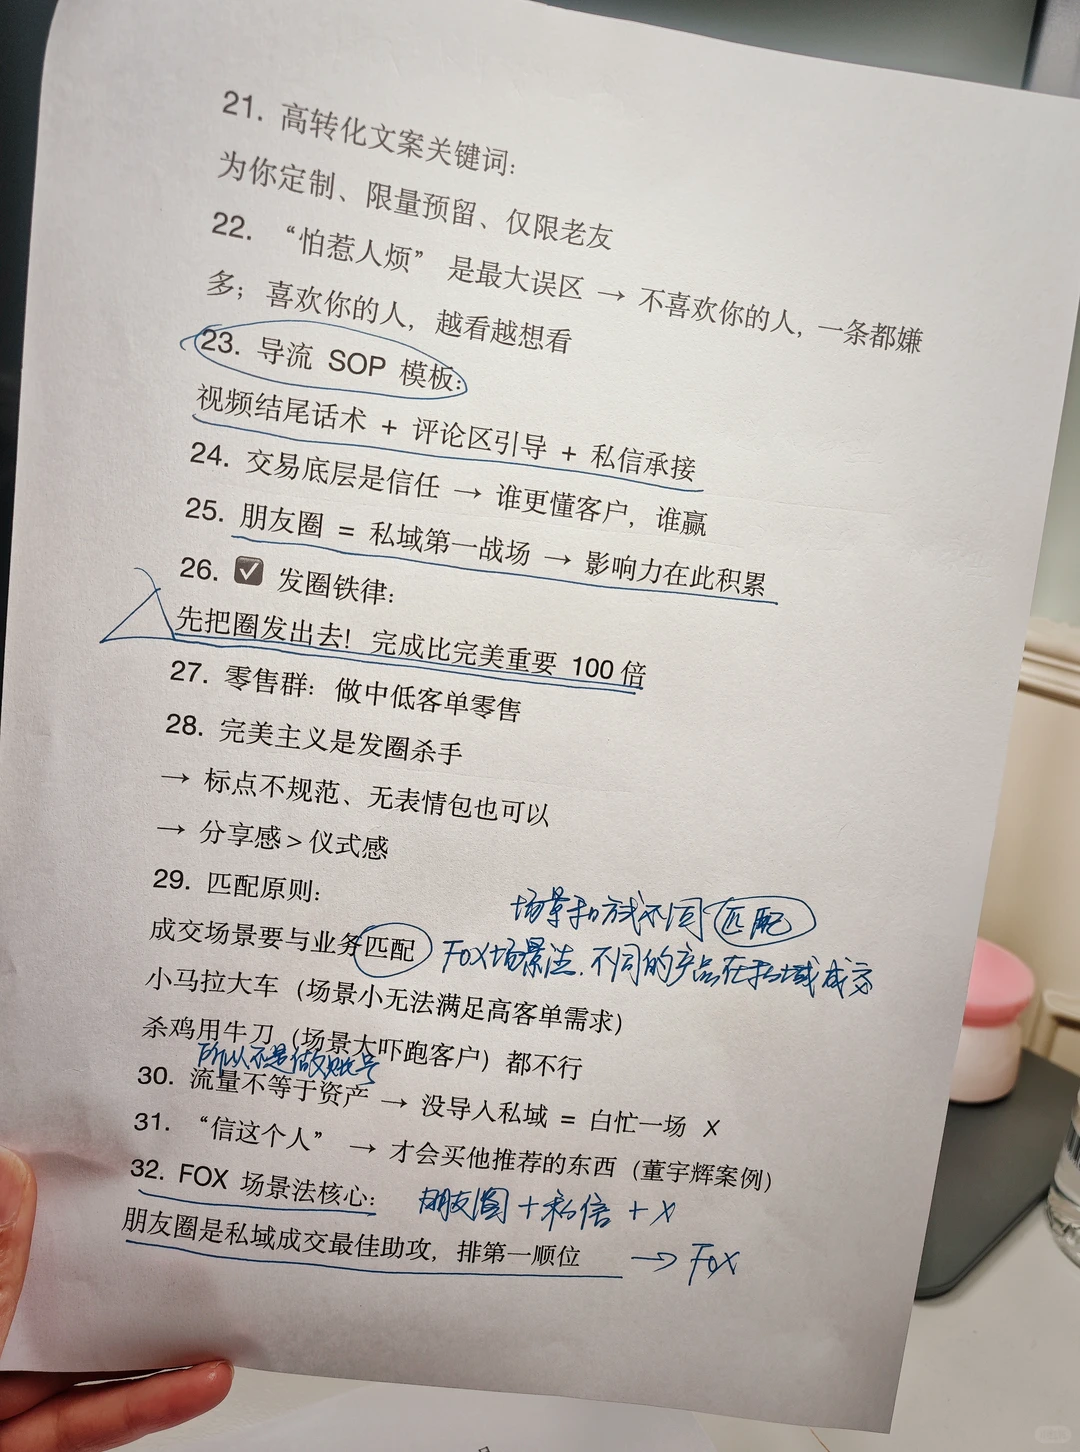 21. 高转化文案关键词：
为你定制、限量预留、仅限老友
22. “怕惹人烦” 是最大误区 → 不喜欢你的人，一条都嫌
多；喜欢你的人，越看越想看
23. 导流 SOP 模板：
视频结尾话术 + 评论区引导 + 私信承接
24. 交易底层是信任 → 谁更懂客户，谁赢
25. 朋友圈 = 私域第一战场 → 影响力在此积累
26. ✅ 发圈铁律：
先把圈发出去！完成比完美重要 100 倍
27. 零售群：做中低客单零售
28. 完美主义是发圈杀手
→ 标点不规范、无表情包也可以
→ 分享感 > 仪式感
29. 匹配原则：
场景和方式不同 匹配
成交场景要与业务匹配
FOX场景法. 不同的产品在私域成交
小马拉大车（场景小无法满足高客单需求）
杀鸡用牛刀（场景大吓跑客户）都不行
所以不是做账号
30. 流量不等于资产 → 没导入私域 = 白忙一场 X
31. “信这个人” → 才会买他推荐的东西（董宇辉案例）
32. FOX 场景法核心：
朋友圈 + 私信 + X
朋友圈是私域成交最佳助攻，排第一顺位
→ FOX